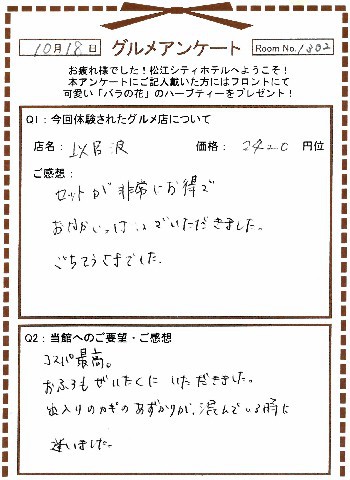 10月18日 グルメアンケート Room No. 1302
お疲れ様でした!松江シティホテルへようこそ!
本アンケートにご記入戴いた方にはフロントにて
可愛い「バラの花」のハーブティーをプレゼント!
Q1:今回体験されたグルメ店について
店名: 価格: 2420 円位
ご感想:
セットが非常にお得で
おなかいっぱいいただきました。
ごちそうさまでした。
Q2:当館へのご要望・ご感想
コスパ最高。
おふろもぜいたくにいただきました。
出入りのカギのあずかりが、混んでいる時に
迷いました。